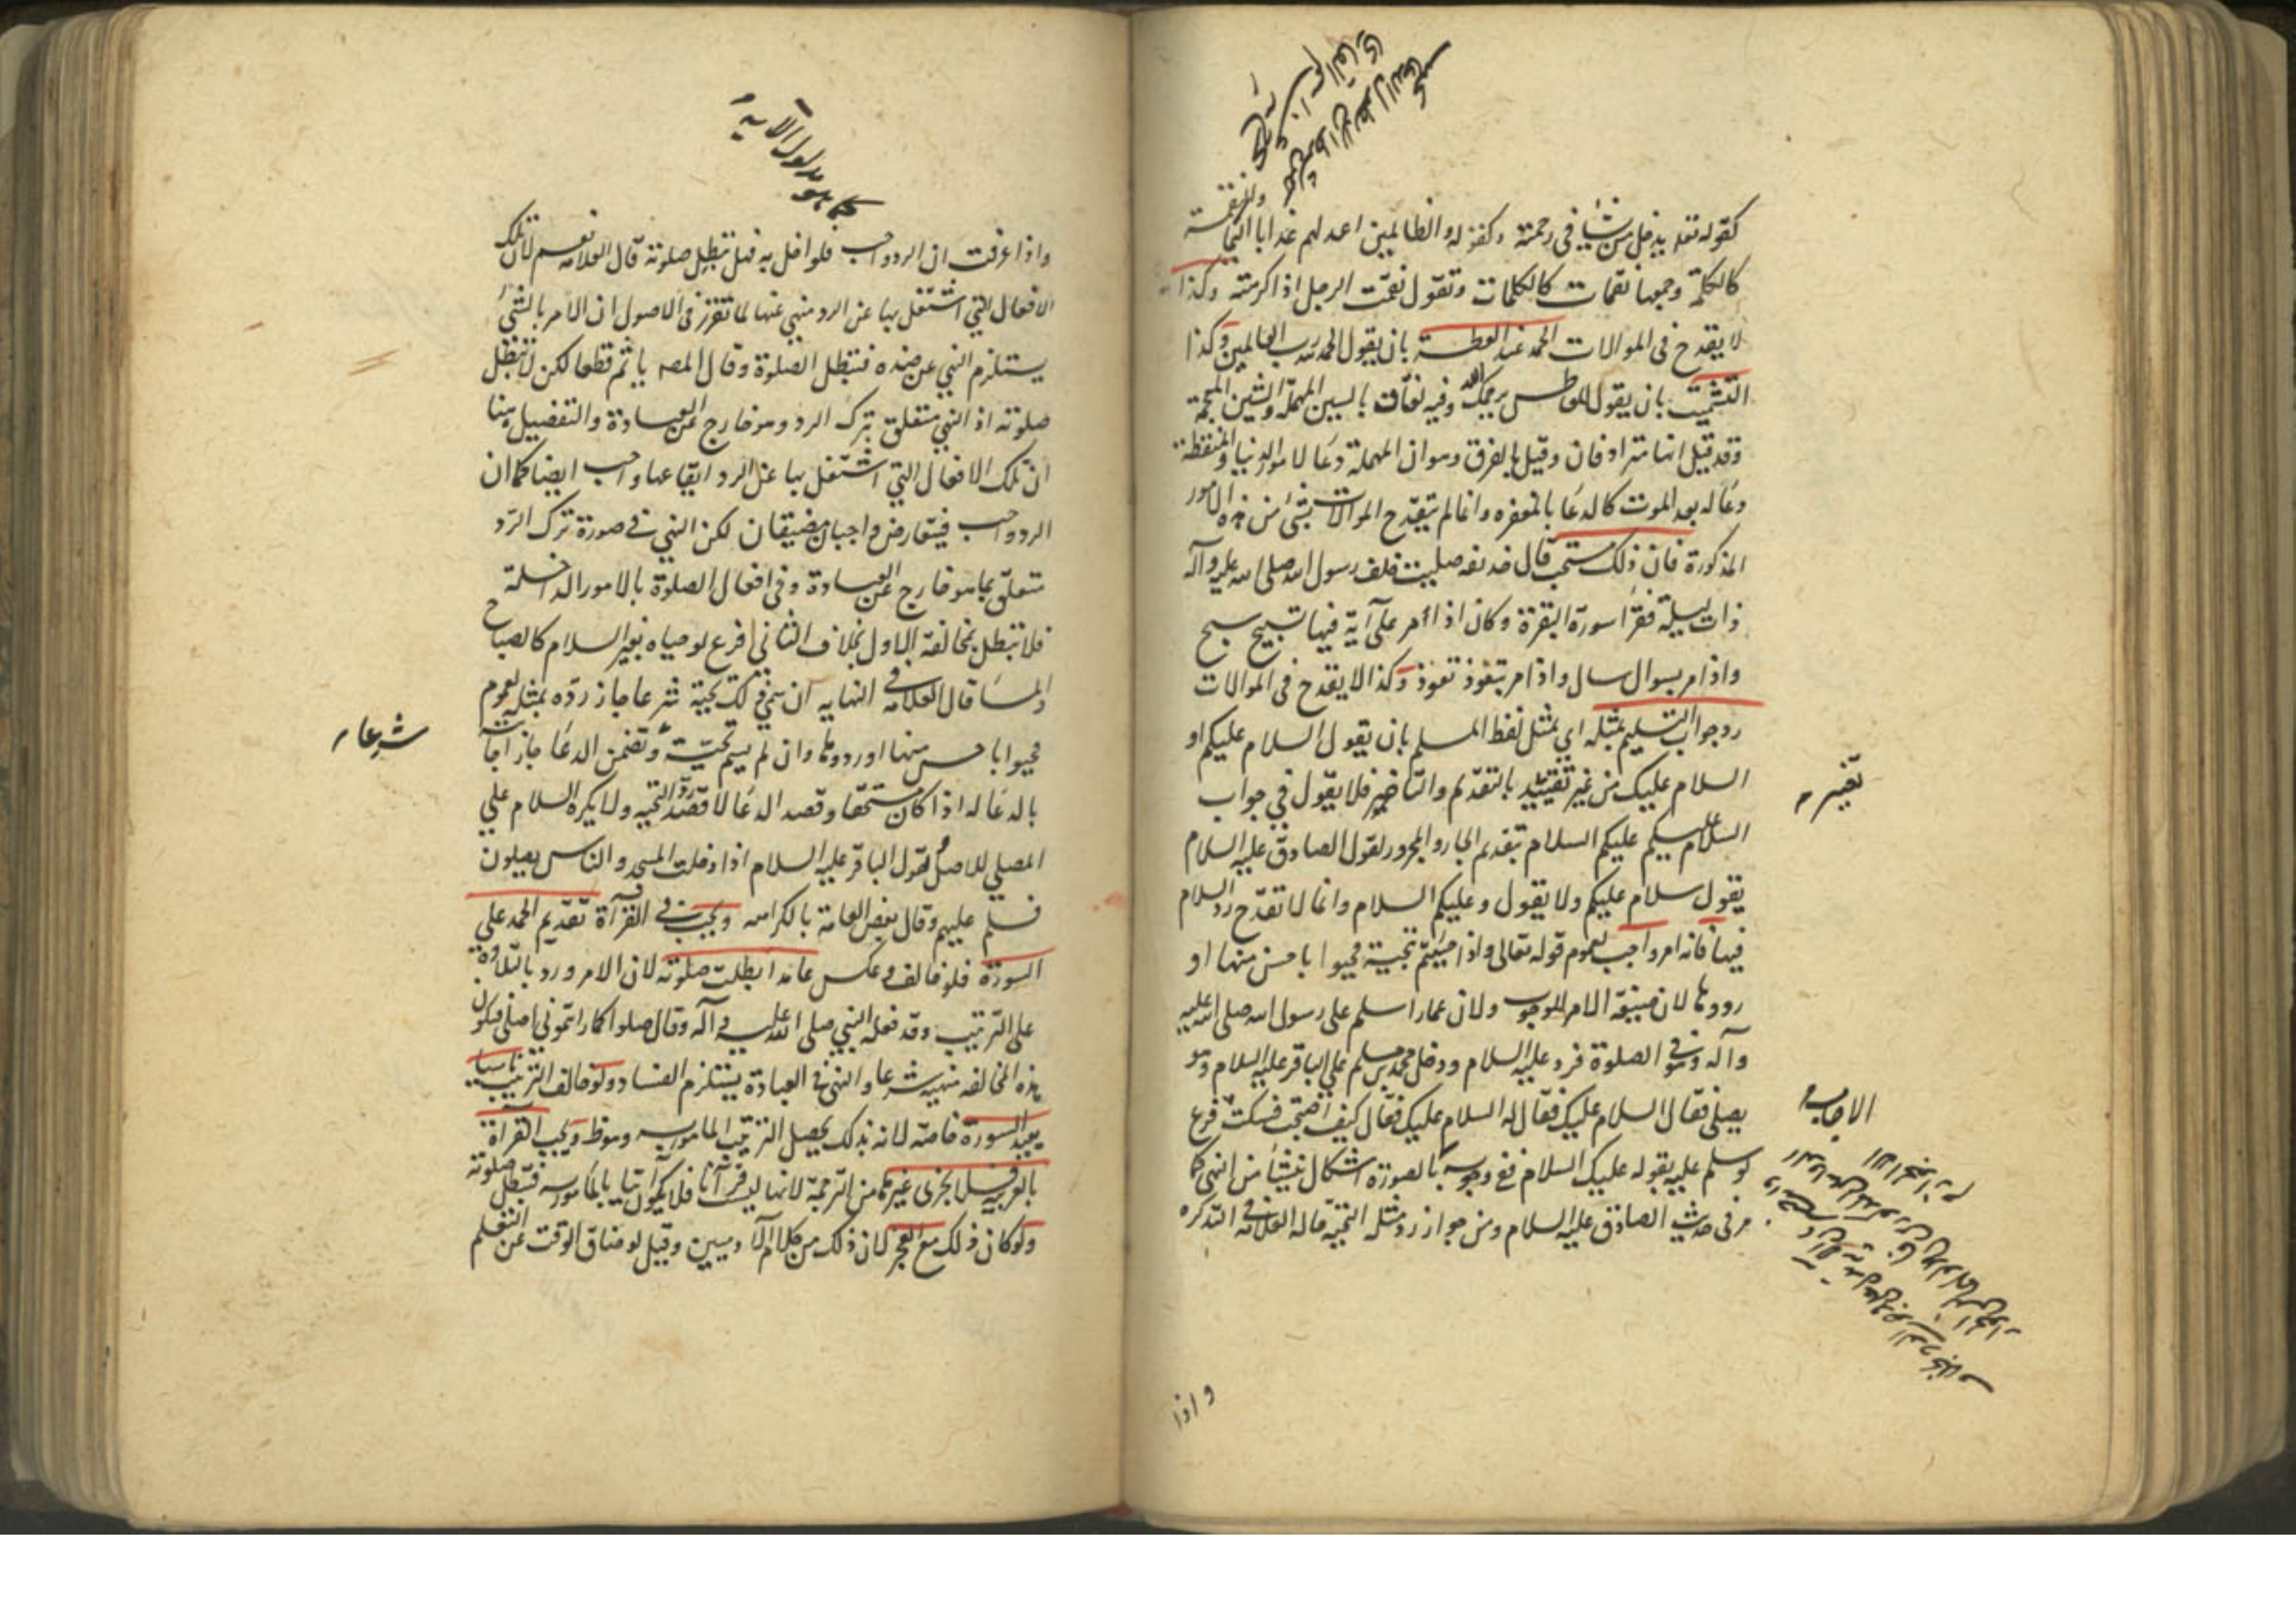 كقوله تعد يدخل من يشاء فى رحمته وكقوله والظالمين اعد لهم عذابا اليما والنقمة
كالكلمة وجمعها نقمات كالكلمات وتقول نقمت الرجل اذا كرهته وكذا
لا يقدح فى الموالات الحمد عند العطسة بان يقول الحمد لله رب العالمين وكذا
التشميت بان يقول للعاطس يرحمك الله وفيه لغات بالسين المهملة والشين المعجمة
وقد قيل انها مترادفان وقيل بالفرق وهو ان المهملة دعا لامور الدنيا والمنقطة
دعا له بعد الموت كالدعا بالمغفره وانما لم يقدح الموالات بشئ من هذه الامور
المذكورة فان ذلك مستحب قال حذيفه صليت خلف رسول الله صلى الله عليه وآله
ذات ليلة فقرأ سورة البقرة وكان اذا مر على آية فيها تسبيح سبح
واذا مر بسوال سال واذا مر بتعوذ تعوذ وكذا لا يقدح فى الموالات
رد جواب التسليم بمثله اي بمثل لفظ المسلم بان يقول السلام عليكم او
السلام عليك من غير تقييد بالتقديم والتاخير فلا يقول في جواب
السلام عليكم عليكم السلام بتقديم الجار والمجرور لقول الصادق عليه السلام
يقول سلام عليكم ولا يقول وعليكم السلام وانما لا تقدح رد السلام
فيها فانه امر واجب لعموم قوله تعالى واذا حييتم بتحية فحيوا باحسن منها او
ردوها لان صيغة الامر للوجوب ولان عمارا سلم على رسول الله صلى الله عليه
وآله وهو فى الصلوة فرد عليه السلام ودخل محمد بن مسلم على الباقر عليه السلام وهو
يصلى فقال السلام عليك فقال له السلام عليك فقال كيف اصبحت فسكت فرع
لو سلم عليه بقوله عليك السلام ففى وجوب بالصورة اشكال ينشأ من النهى كما
مر فى حديث الصادق عليه السلام ومن جواز رد مثله التحية قاله العلامة فى التذكره
تغير
الاجابة
واذا
كما هو مدلول الآية
واذا عرفت ان الرد واجب فلو اخل به فهل تبطل صلوته قال العلامه نعم لان تلك
الافعال التي اشتغل بها عن الرد منهي عنها لما تقرر فى الاصول ان الامر بالشئ
يستلزم النهي عن ضده فتبطل الصلوة وقال المصه ياثم قطعا لكن لا تبطل
صلوته اذ النهي متعلق بترك الرد وهو خارج عن العبادة والتفصيل هنا
ان تلك الافعال التي اشتغل بها عن الرد ايقاعها واجب ايضا كما ان
الرد واجب فيتعارض واجبان مضيقان لكن النهي فى صورة ترك الرد
متعلق بما هو خارج عن العبادة وفي افعال الصلوة بالامور الداخلة
فلا تبطل بمخالفة الاول بخلاف الثاني فرع لو حياه بغير السلام كالصباح
والمسا قال العلامة فى النهايه ان سمي ذلك تحية شرعا جاز رده بمثله لعموم
فحيوا باحسن منها او ردوها وان لم يسم تحية وتضمن الدعا جاز اجابته
بالدعا له اذا كان مستحقا وقصد الدعا لا قصد رد التحيه ولا يكره السلام علي
المصلي للاصل ولقول الباقر عليه السلام اذا دخلت المسجد والناس يصلون
فسلم عليهم وقال بعض العامة بالكراهه ويجب فى القرآة تقديم الحمد على
السورة فلو خالف وعكس عامدا بطلت صلوته لان الامر ورد بالتلاوة
على الترتيب وقد فعله النبي صلى الله عليه وآله وقال صلوا كما رأيتموني اصلي فيكون
هذه المخالفه منهية شرعا والنهى فى العبادة يستلزم الفساد ولو خالف الترتيب ناسيا
يعيد السورة خاصه لانه بذلك يحصل الترتيب المأمور به وهو ظ ويجب القرآة
بالعربيه فلا يجزى غيرها من الترجمة لانها ليست قرآنا فلا يكون آتيا بالمأمور به فتبطل صلوته
ولو كان ذلك مع العجز لان ذلك من كلام الآدميين وقيل لو ضاق الوقت عن التعلم
شرعا